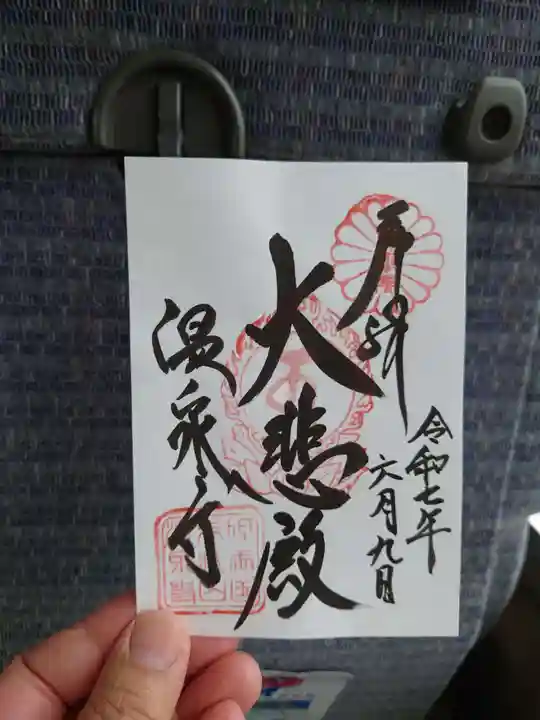 奉拝
令和七年
六月九日
大悲殿
温泉寺